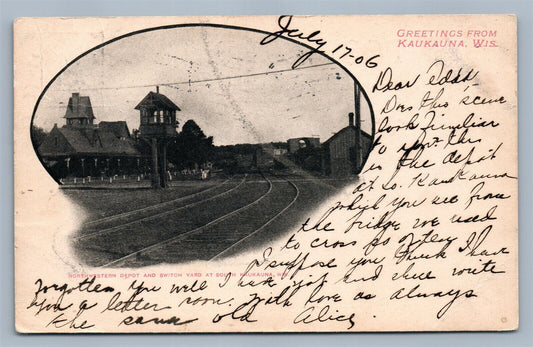 GREETINGS FROM
KAUKAUNA, WIS.
July 17-06
Dear Adda
Does this scene
look familiar
to you this
is the depot
at So. Kaukauna
which you see from
the bridge we used
to cross so often
I suppose you think I have
forgotten you will I have not and will write
you a letter soon. With love as always
the same old Alice
NORTHWESTERN DEPOT AND SWITCH YARD AT SOUTH KAUKAUNA, WIS.